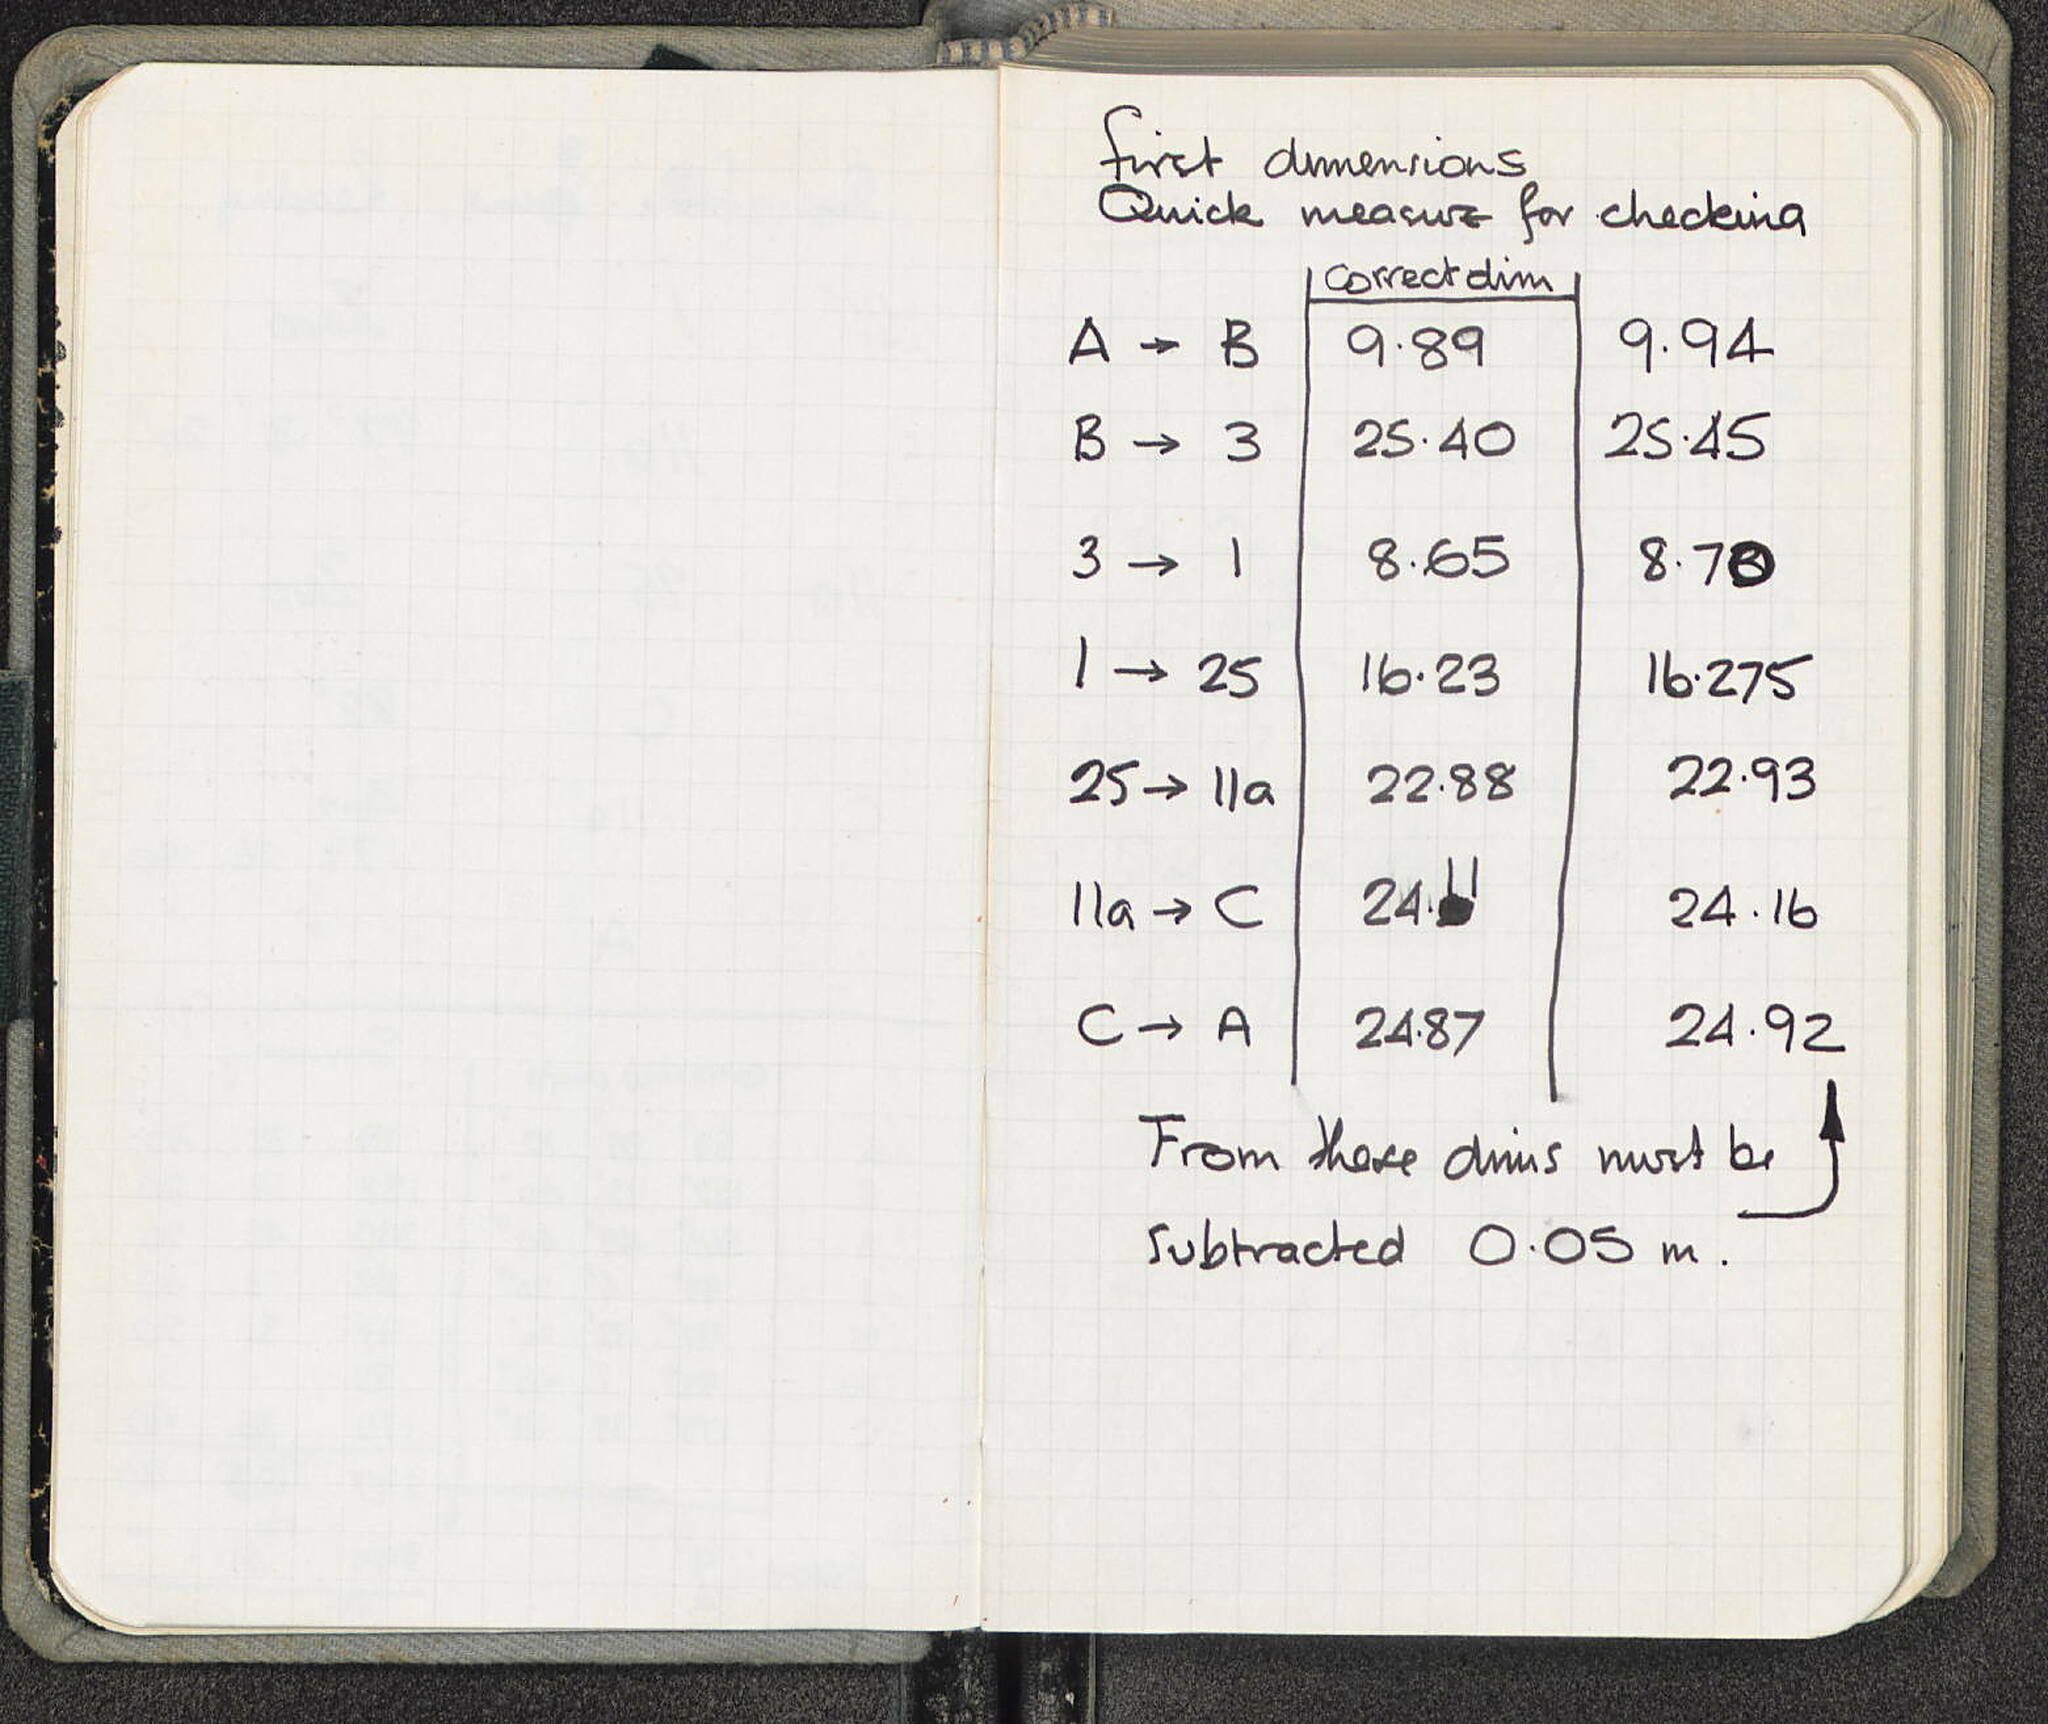 first dimensions
Quick measure for checking
correct dim
A → B 9.89 9.94
B → 3 25.40 25.45
3 → 1 8.65 8.70
1 → 25 16.23 16.275
25 → 11a 22.88 22.93
11a → C 24.11 24.16
C → A 24.87 24.92
From these dims must be
subtracted 0.05 m.